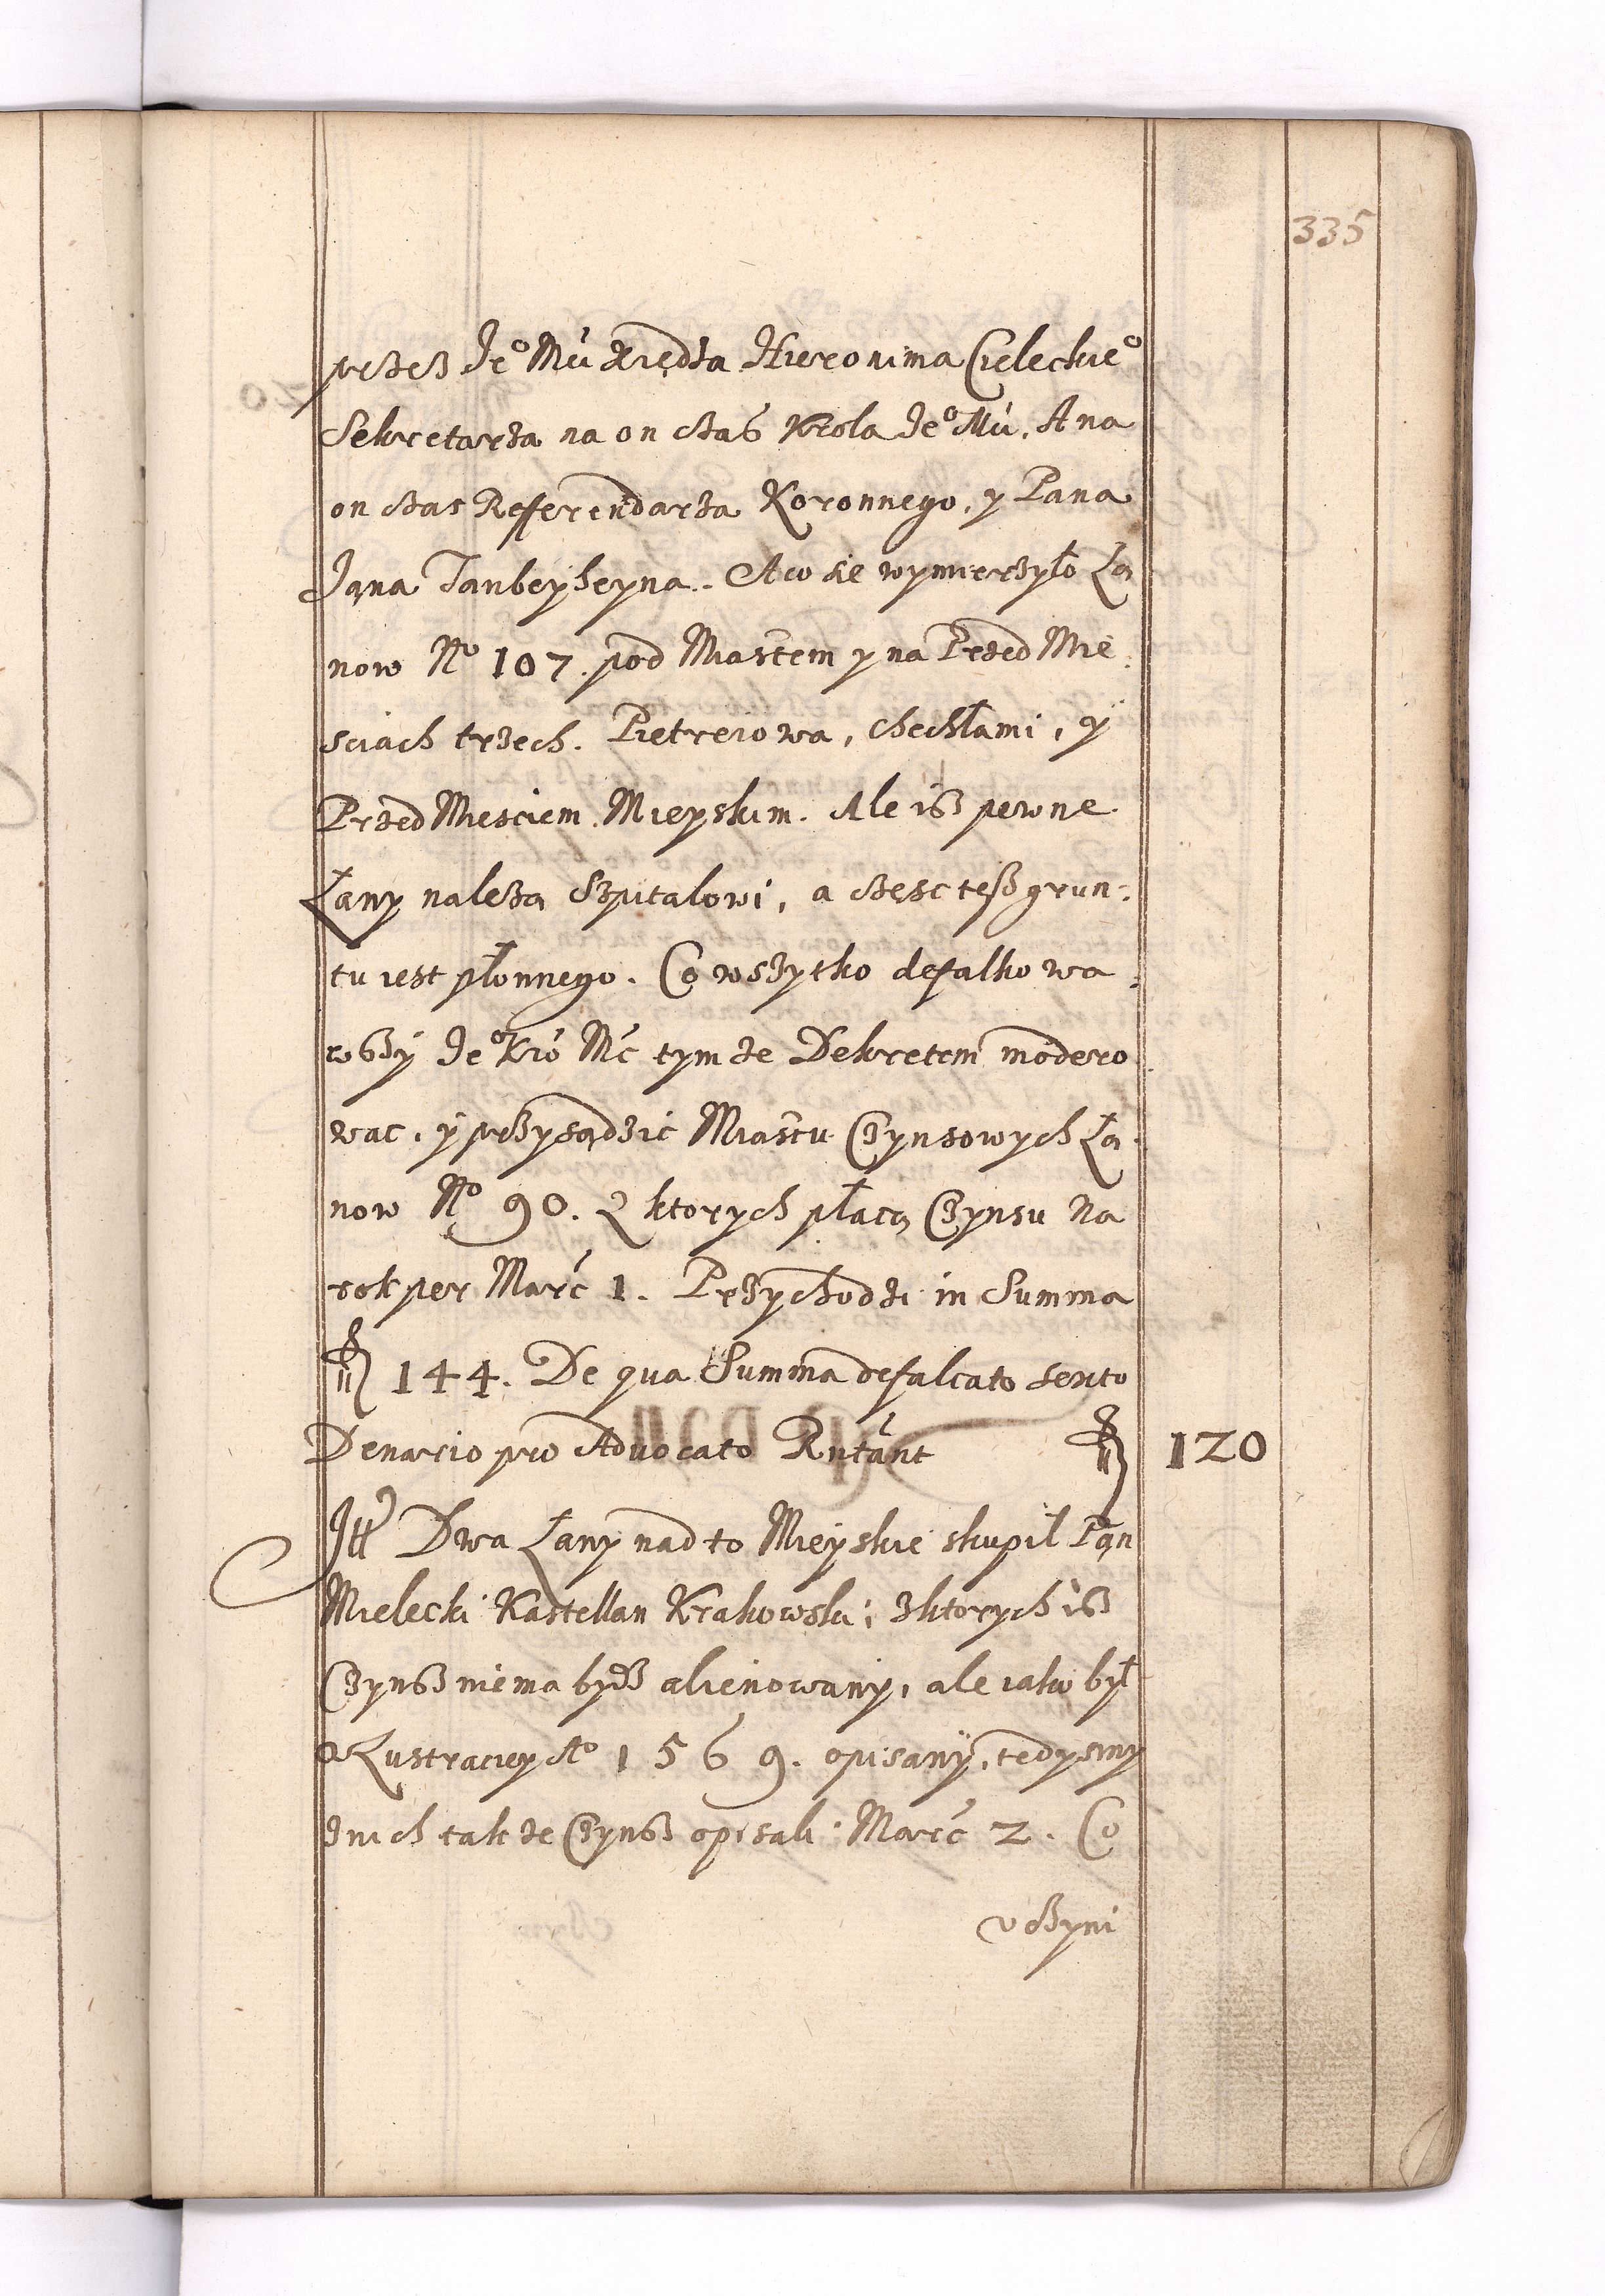 335
przez Jeº Mći Xiędza Hieronima Cieleckieº
Sekretarza na on czas Krola Jeº Mći. A na
on czas Referendarza Koronnego, y Pana
Jana Tanbeyheyna. A co sie wymierzyło Ła
now Nº 107. pod Miastem y na Przed Mie
sciach trzech. Pietreiowa, chechłami, y
Przed Miesciem Mieyskim. Ale isz pewne
Łany należą Szpitalowi, a częsc tesz grun-
tu iest płonnego. Co wszytko defalkowa
wszy Jeº Kró Mć tymże Dekretem modero
wac, y przysądzic Miastu Czynsowych Ła
now Nº 90. Z ktorych płacą Czynsu na
rok per Marć 1. Przychodzi in Summa
fl 144. De qua Summa defalcato sexto
Denario pro Advocato Rńtant fl 120
Itt Dwa Łany nad to Mieyskie skupił Pan
Mielecki Kastellan Krakowski; z ktorych isz
Czynsz niema bydz alienowany, ale iako był
w Lustraciey Aº 1569. opisany, tedysmy
z nich takze Czynsz opisali Marć 2. Co
uczyni